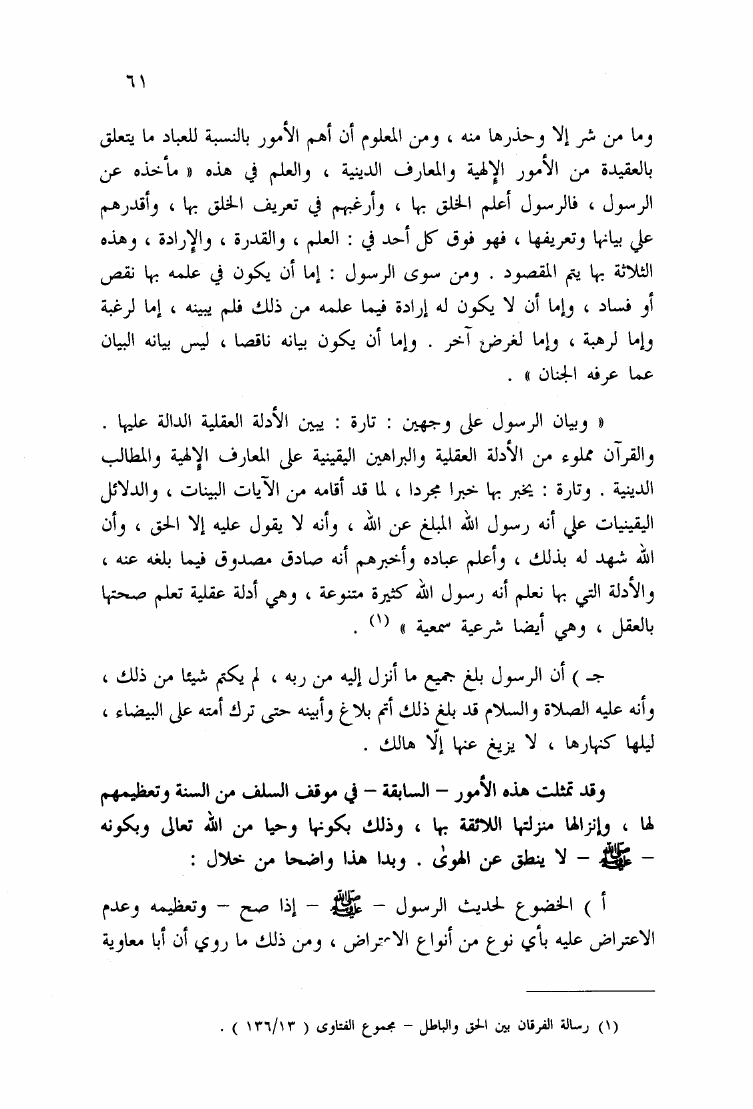 ٦١
وما من شر إلا وحذرها منه ، ومن المعلوم أن أهم الأمور بالنسبة للعباد ما يتعلق
بالعقيدة من الأمور الإلهية والمعارف الدينية ، والعلم في هذه « مأخذه عن
الرسول ، فالرسول أعلم الخلق بها ، وأرغبهم في تعريف الخلق بها ، وأقدرهم
علي بيانها وتعريفها ، فهو فوق كل أحد في : العلم ، والقدرة ، والإرادة ، وهذه
الثلاثة بها يتم المقصود . ومن سوى الرسول : إما أن يكون في علمه بها نقص
أو فساد ، وإما أن لا يكون له إرادة فيما علمه من ذلك فلم يبينه ، إما لرغبة
وإما لرهبة ، وإما لغرض آخر . وإما أن يكون بيانه ناقصا ، ليس بيانه البيان
عما عرفه الجنان » .
« وبيان الرسول على وجهين : تارة : يبين الأدلة العقلية الدالة عليها .
والقرآن مملوء من الأدلة العقلية والبراهين اليقينية على المعارف الإلهية والمطالب
الدينية . وتارة : يخبر بها خبرا مجردا ، لما قد أقامه من الآيات البينات ، والدلائل
اليقينيات علي أنه رسول الله المبلغ عن الله ، وأنه لا يقول عليه إلا الحق ، وأن
الله شهد له بذلك ، وأعلم عباده وأخبرهم أنه صادق مصدوق فيما بلغه عنه ،
والأدلة التي بها نعلم أنه رسول الله كثيرة متنوعة ، وهي أدلة عقلية تعلم صحتها
بالعقل ، وهي أيضا شرعية سمعية » (١) .
جـ ) أن الرسول بلغ جميع ما أنزل إليه من ربه ، لم يكتم شيئا من ذلك ،
وأنه عليه الصلاة والسلام قد بلغ ذلك أتم بلاغ وأبينه حتى ترك أمته على البيضاء ،
ليلها كنهارها ، لا يزيغ عنها إلّا هالك .
وقد تمثلت هذه الأمور – السابقة – في موقف السلف من السنة وتعظيمهم
لها ، وإنزالها منزلتها اللائقة بها ، وذلك بكونها وحيا من الله تعالى وبكونه
– ﷺ – لا ينطق عن الهوىٰ . وبدا هذا واضحا من خلال :
أ ) الخضوع لحديث الرسول – ﷺ – إذا صح – وتعظيمه وعدم
الاعتراض عليه بأي نوع من أنواع الاعتراض ، ومن ذلك ما روي أن أبا معاوية
(١) رسالة الفرقان بين الحق والباطل – مجموع الفتاوى ( ١٣٦/١٣ ) .